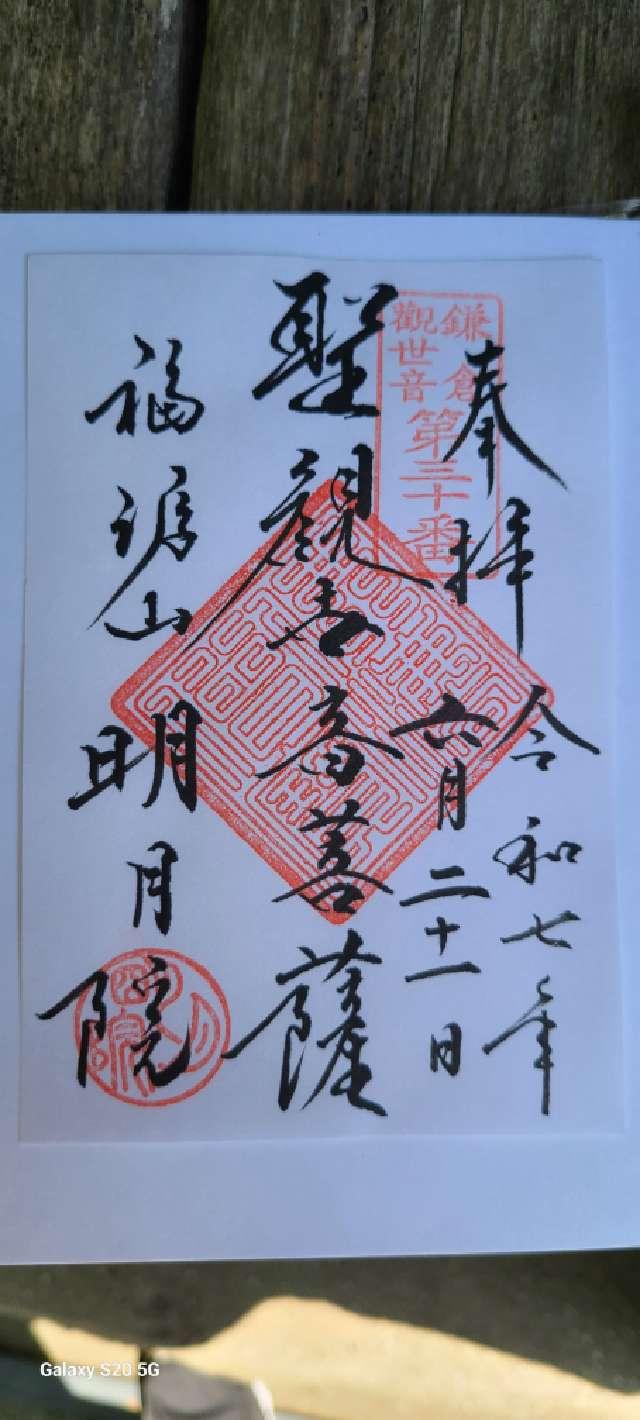 鎌倉
觀世音
第三十番
奉拝
令和七年
六月二十一日
聖観世音菩薩
福源山
明月院
Galaxy S20 5G